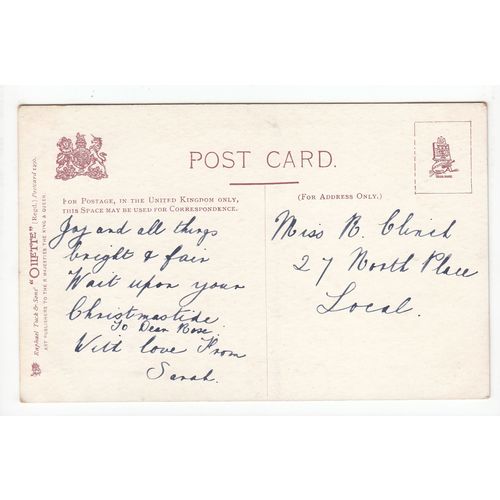 POST CARD.
FOR POSTAGE, IN THE UNITED KINGDOM ONLY,
THIS SPACE MAY BE USED FOR CORRESPONDENCE.
(FOR ADDRESS ONLY.)
Joy and all things
bright & fair
Wait upon your
Christmastide
To Dear Rose
With love From
Sarah.
Miss R. Clinch
27 North Place
Local.
Raphael Tuck & Sons' "OILETTE" (Regd.) Postcard
ART PUBLISHERS TO THEIR MAJESTIES THE KING & QUEEN.